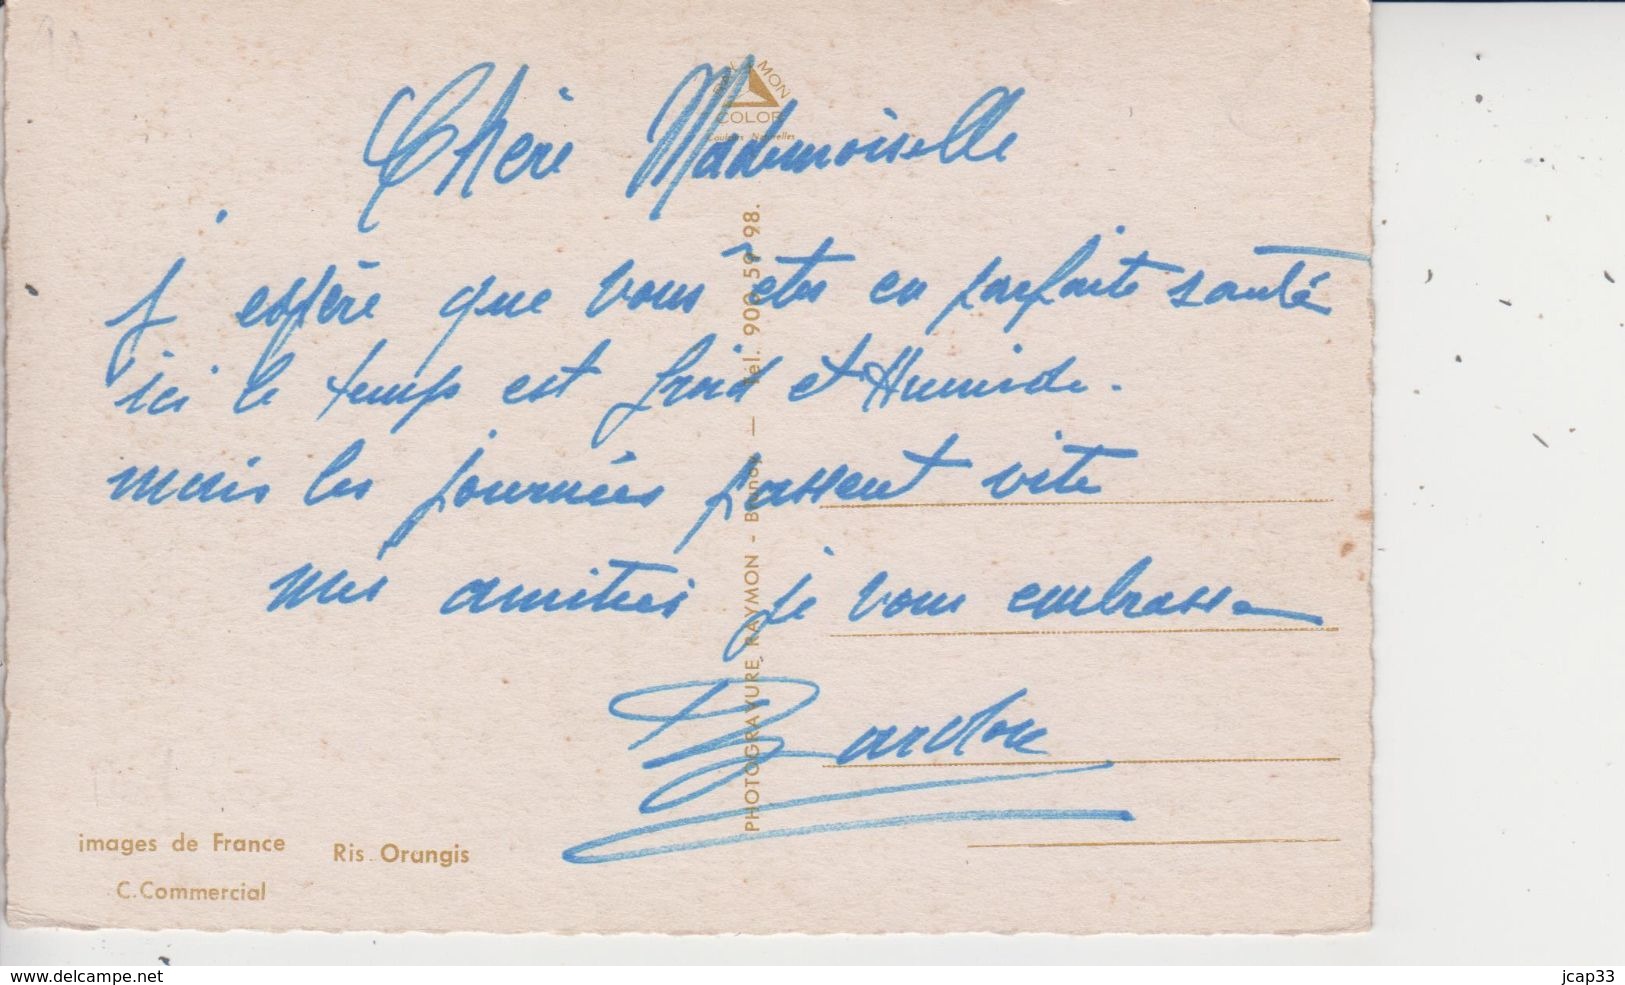 Chère Mademoiselle
j' espère que vous êtes en parfaite santé
ici le temps est froid et Humide.
mais les journées passent vite
mes amitiés je vous embrasse
RAYMON
COLOR
Couleurs Naturelles
PHOTOGRAVURE RAYMON - Brunoy — Tél. 900.59.98.
images de France
Ris Orangis
C.Commercial
www.delcampe.net
jcap33